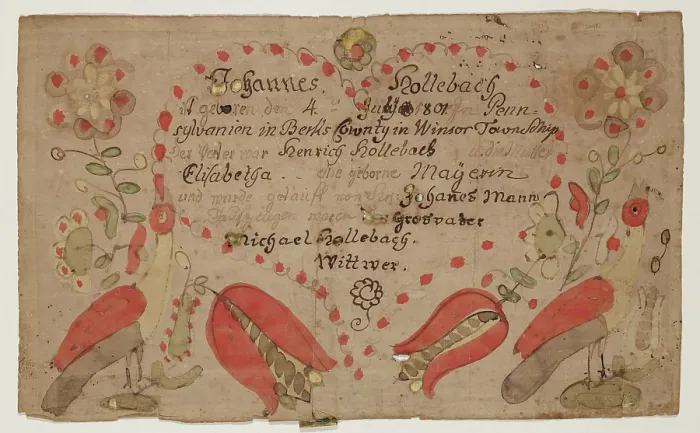 Johannes. Hollebach
ist geboren den 4. July 1801 in Penn=
sylvanien in Berks Cownty in Winsor Township
der Vater war Henrich Hollebach u. die Mutter
Elisabetha .. eine geborne Mayerin
und wurde getauft von Johanes Mann
Taufzeugen waren der Grosvater
Michael Hollebach.
Wittwer.